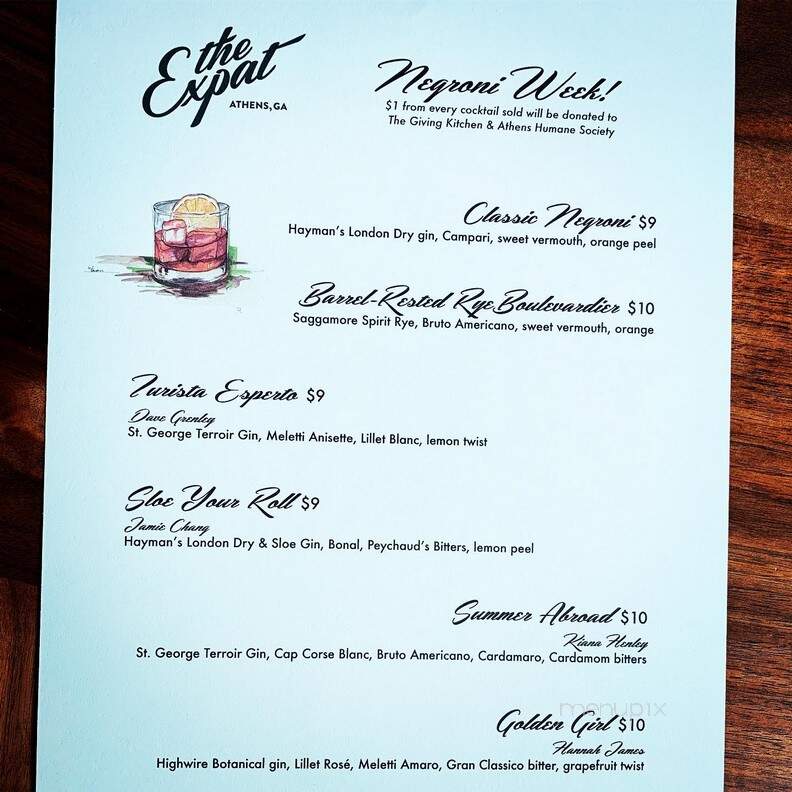 the
Expat
ATHENS, GA
Negroni Week!
$1 from every cocktail sold will be donated to
The Giving Kitchen & Athens Humane Society
Classic Negroni $9
Hayman's London Dry gin, Campari, sweet vermouth, orange peel
Barrel-Rested Rye Boulevardier $10
Saggamore Spirit Rye, Bruto Americano, sweet vermouth, orange
Turista Esperto $9
Dave Grenley
St. George Terroir Gin, Meletti Anisette, Lillet Blanc, lemon twist
Sloe Your Roll $9
Jamie Chang
Hayman's London Dry & Sloe Gin, Bonal, Peychaud's Bitters, lemon peel
Summer Abroad $10
Kiana Henley
St. George Terroir Gin, Cap Corse Blanc, Bruto Americano, Cardamaro, Cardamom bitters
menupix
Golden Girl $10
Hannah James
Highwire Botanical gin, Lillet Rosé, Meletti Amaro, Gran Classico bitter, grapefruit twist